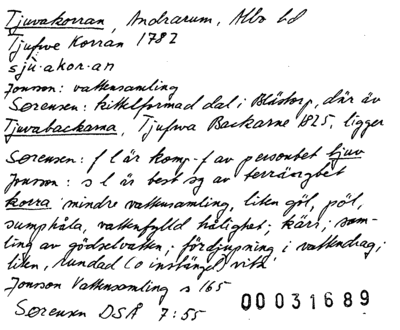 Tjuvakorran, Andrarum, Albo hd
Tjufwe Korran 1782
sju·akor·an
Jonsson: vattensamling
Sørensen: kittelformad dal i Blåstorp, där äv
Tjuvabackarna, Tjufwa Backarne 1825, ligger
Sørensen: f l är komp-f av personbet tjuv
Jonsson: s l är best sg av terrängbet
korra mindre vattensamling, liten göl, pöl,
sumphåla, vattenfylld hålighet; kärr; sam-
ling av gödselvatten; fördjupning i vattendrag;
liten, rundad (o instängd) vik
Jonsson Vattensamling s 165
Sørensen DSÅ 7:55
00031689